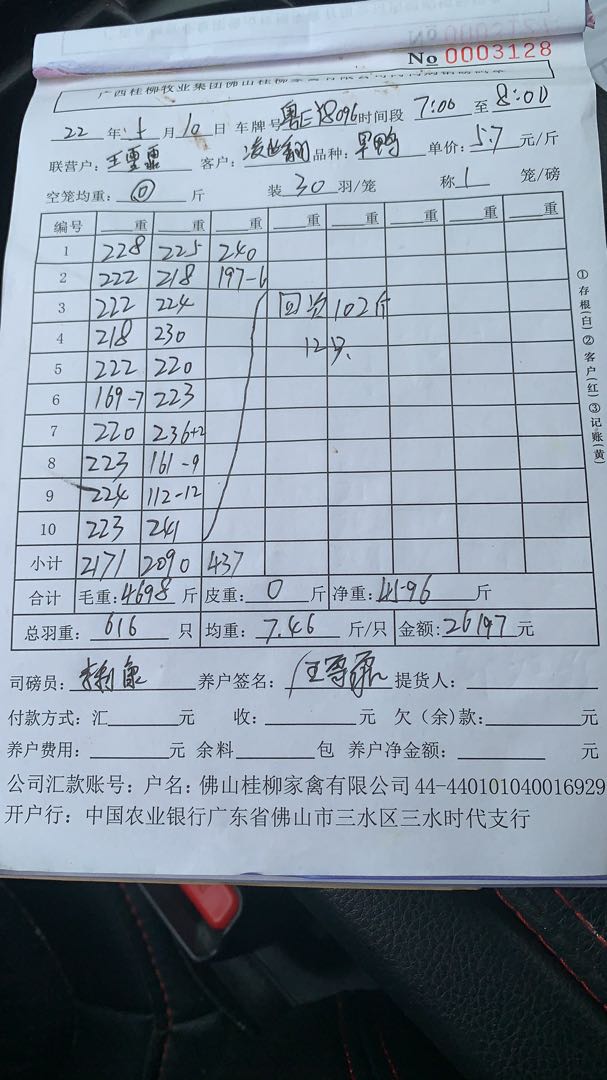 No 0003128
22 年 1 月 10 日 车牌号 粤E 18096 时间段 7:00 至 8:00
联营户: 王 客户: 品种: 旱鸭 单价: 5.7 元/斤
空笼均重: 0 斤 装 30 羽/笼 称 1 笼/磅
编号 重 重 重 重 重 重 重 重
1 228 225 240
2 222 218 197-6
3 222 224 回 102斤
4 218 230 12只
5 222 220
6 169-7 223
7 220 236+2
8 223 161-9
9 224 112-12
10 223 241
小计 2171 2090 437
合计 毛重: 4698 斤 皮重: 0 斤 净重: 4596 斤
总羽重: 616 只 均重: 7.46 斤/只 金额: 26197 元
司磅员: 李 康 养户签名: 王 提货人:
付款方式: 汇 元 收: 元 欠(余)款: 元
养户费用: 元 余料 包 养户净金额: 元
公司汇款账号: 户名: 佛山桂柳家禽有限公司 44-440101040016929
开户行: 中国农业银行广东省佛山市三水区三水时代支行
①存根(白)②客户(红)③记账(黄)